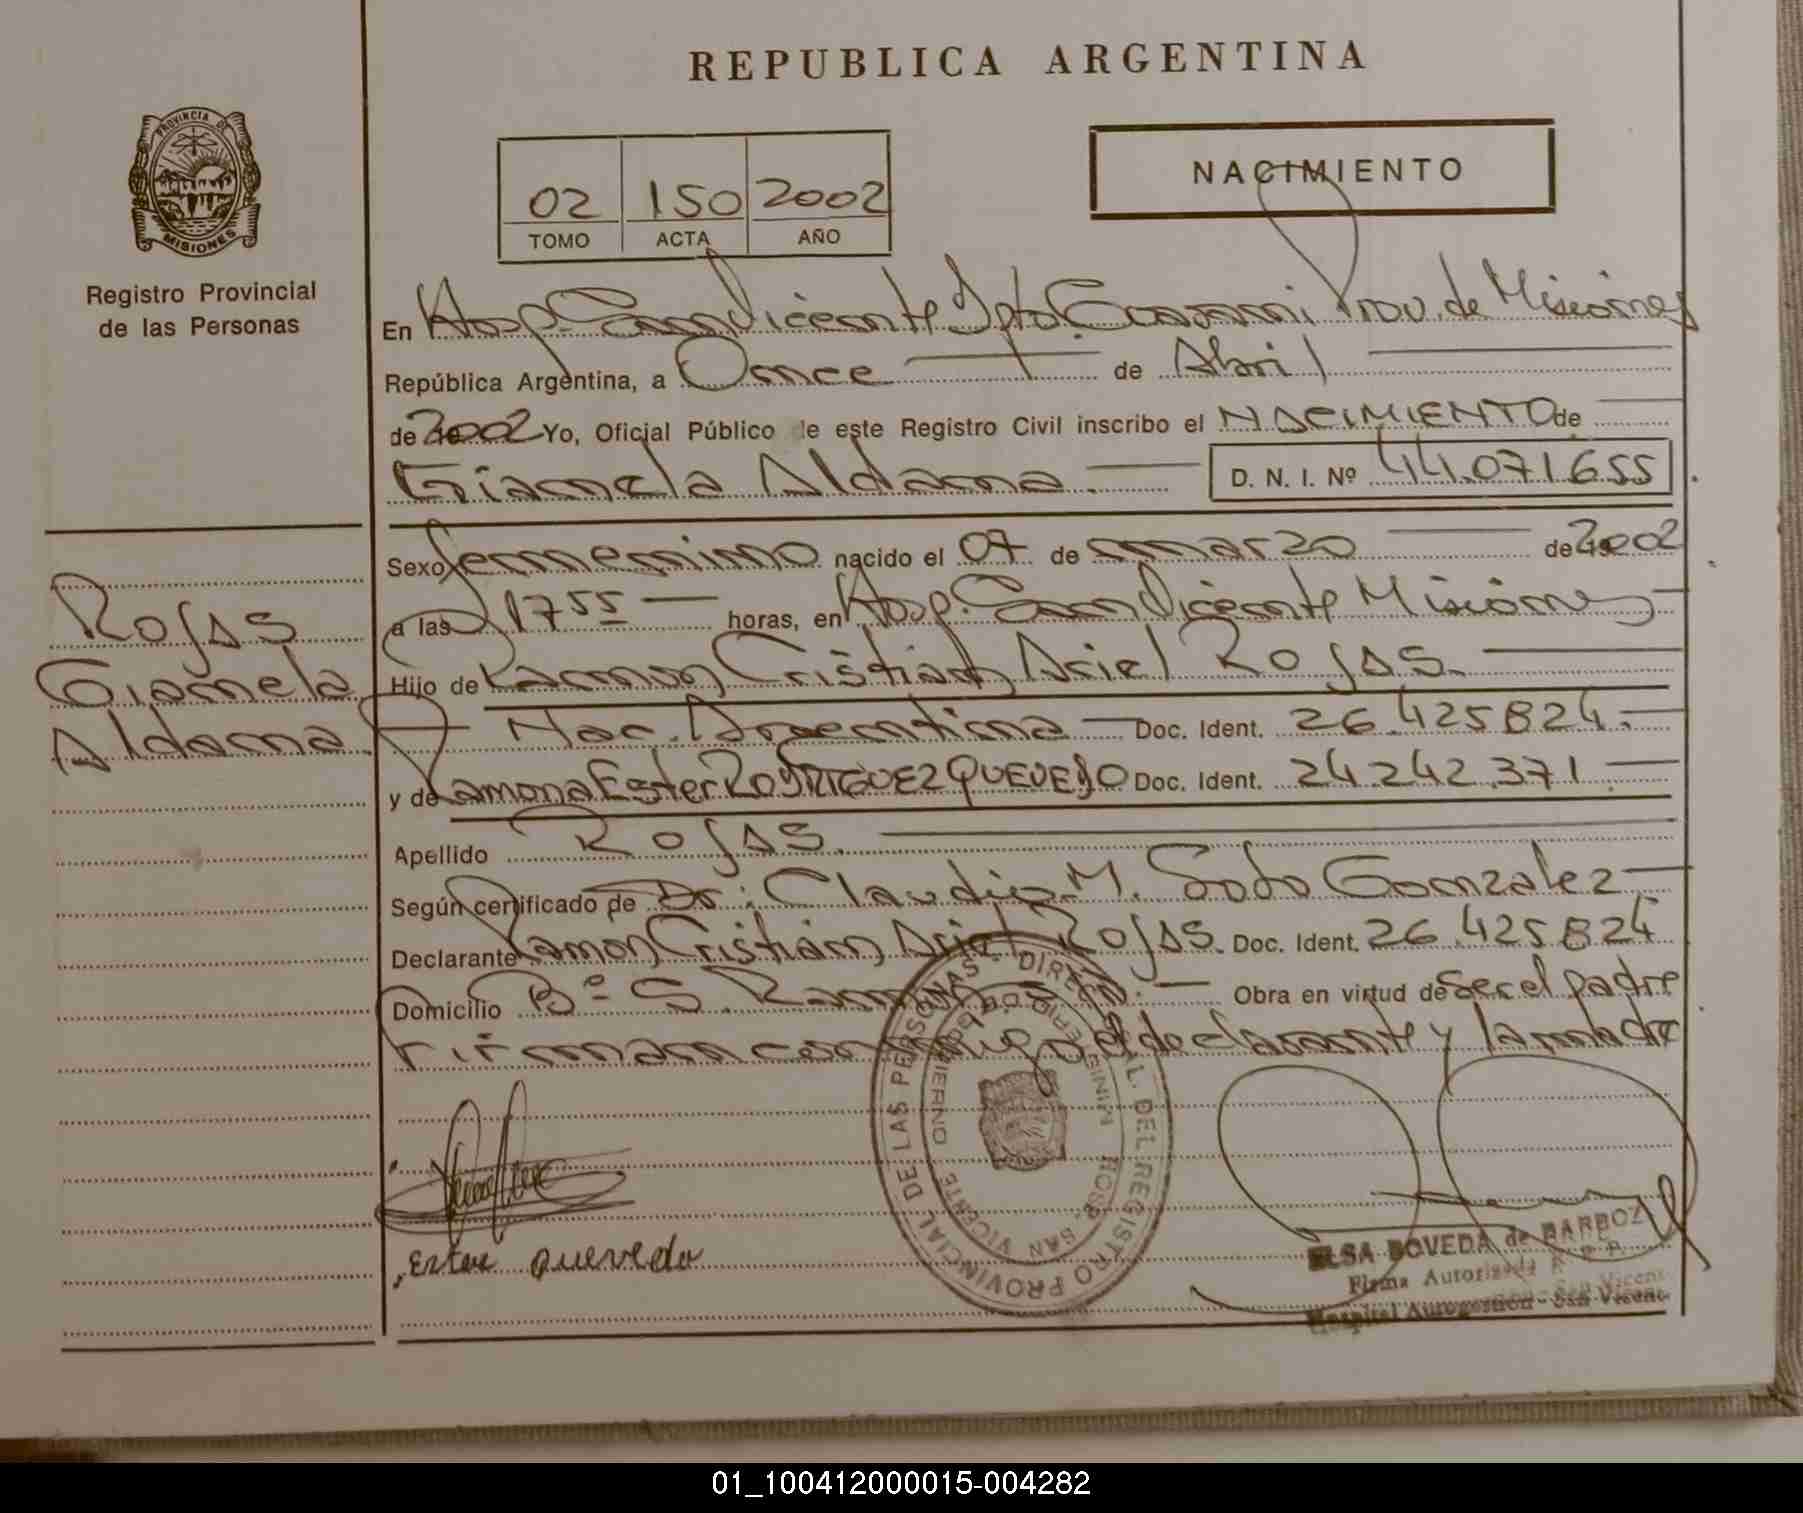 REPUBLICA ARGENTINA
PROVINCIA DE
MISIONES
Registro Provincial
de las Personas
02 150 2002
TOMO ACTA AÑO
NACIMIENTO
En Hosp. San Vicente Dpto Guarani Prov. de Misiones
República Argentina, a Once de Abril
de 2002 Yo, Oficial Público de este Registro Civil inscribo el NACIMIENTO de
Gianela Aldana. D. N. I. Nº 44.071655
Sexo femenino nacido el 07 de marzo de 2002
a las 17 55 horas, en Hosp. San Vicente Misiones
Hijo de Ramon Cristian Ariel Rojas.
Nac. Argentina Doc. Ident. 26.425824.
y de Ramona Ester RODRIGUEZ QUEVEDO Doc. Ident. 24.242.371
Apellido Rojas.
Según certificado de Dr: Claudio M. Soto Gonzalez
Declarante Ramón Cristián Ariel Rojas. Doc. Ident. 26.425824
Domicilio Bº S. Obra en virtud de Ser el padre
Firman conmigo el declarante y la madre
Rojas
Gianela
Aldana.
Ester Quevedo
DEL REGISTRO PROVINCIAL DE LAS PERSONAS
HOSP. SAN VICENTE
ELSA BOVEDA de BARBOZA
Firma Autorizada R. P. P.
Hospital Autogestión - San Vicente
01_100412000015-004282